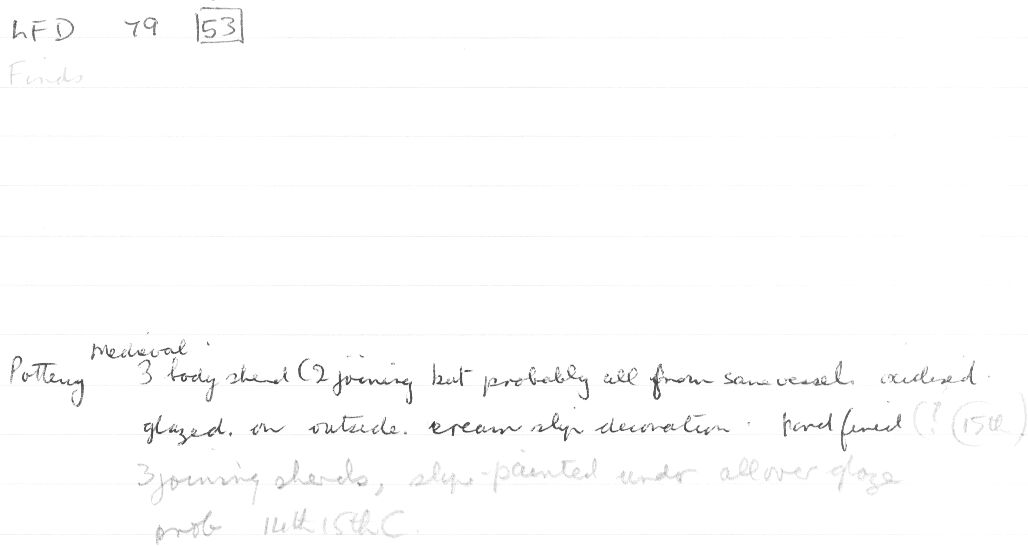 LFD 79 53
Finds
Medieval
Pottery 3 body sherd (2 joining but probably all from same vessel. oxidised.
glazed. on outside. cream slip decoration. hard fired (? (15th)
3 joining sherds, slip-painted under allover glaze
prob 14th 15th C.